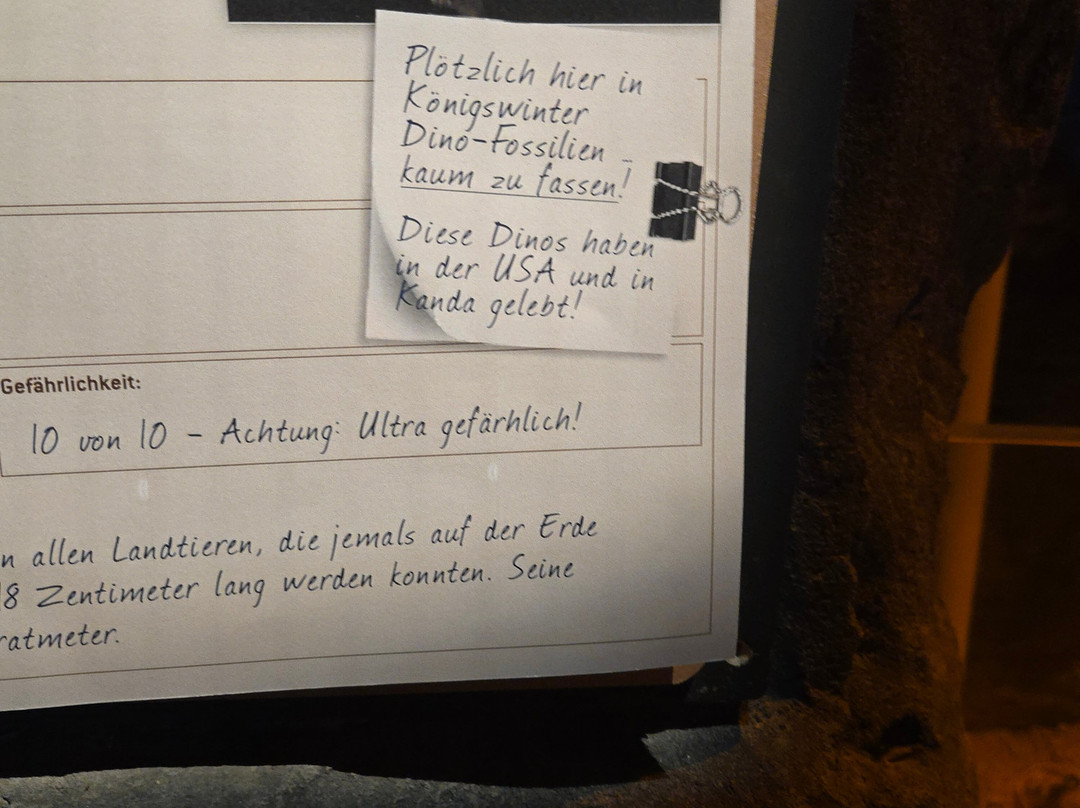 Plötzlich hier in
Königswinter
Dino-Fossilien –
kaum zu fassen!
Diese Dinos haben
in der USA und in
Kanda gelebt!
Gefährlichkeit:
10 von 10 – Achtung: Ultra gefärhlich!
n allen Landtieren, die jemals auf der Erde
18 Zentimeter lang werden konnten. Seine
ratmeter.